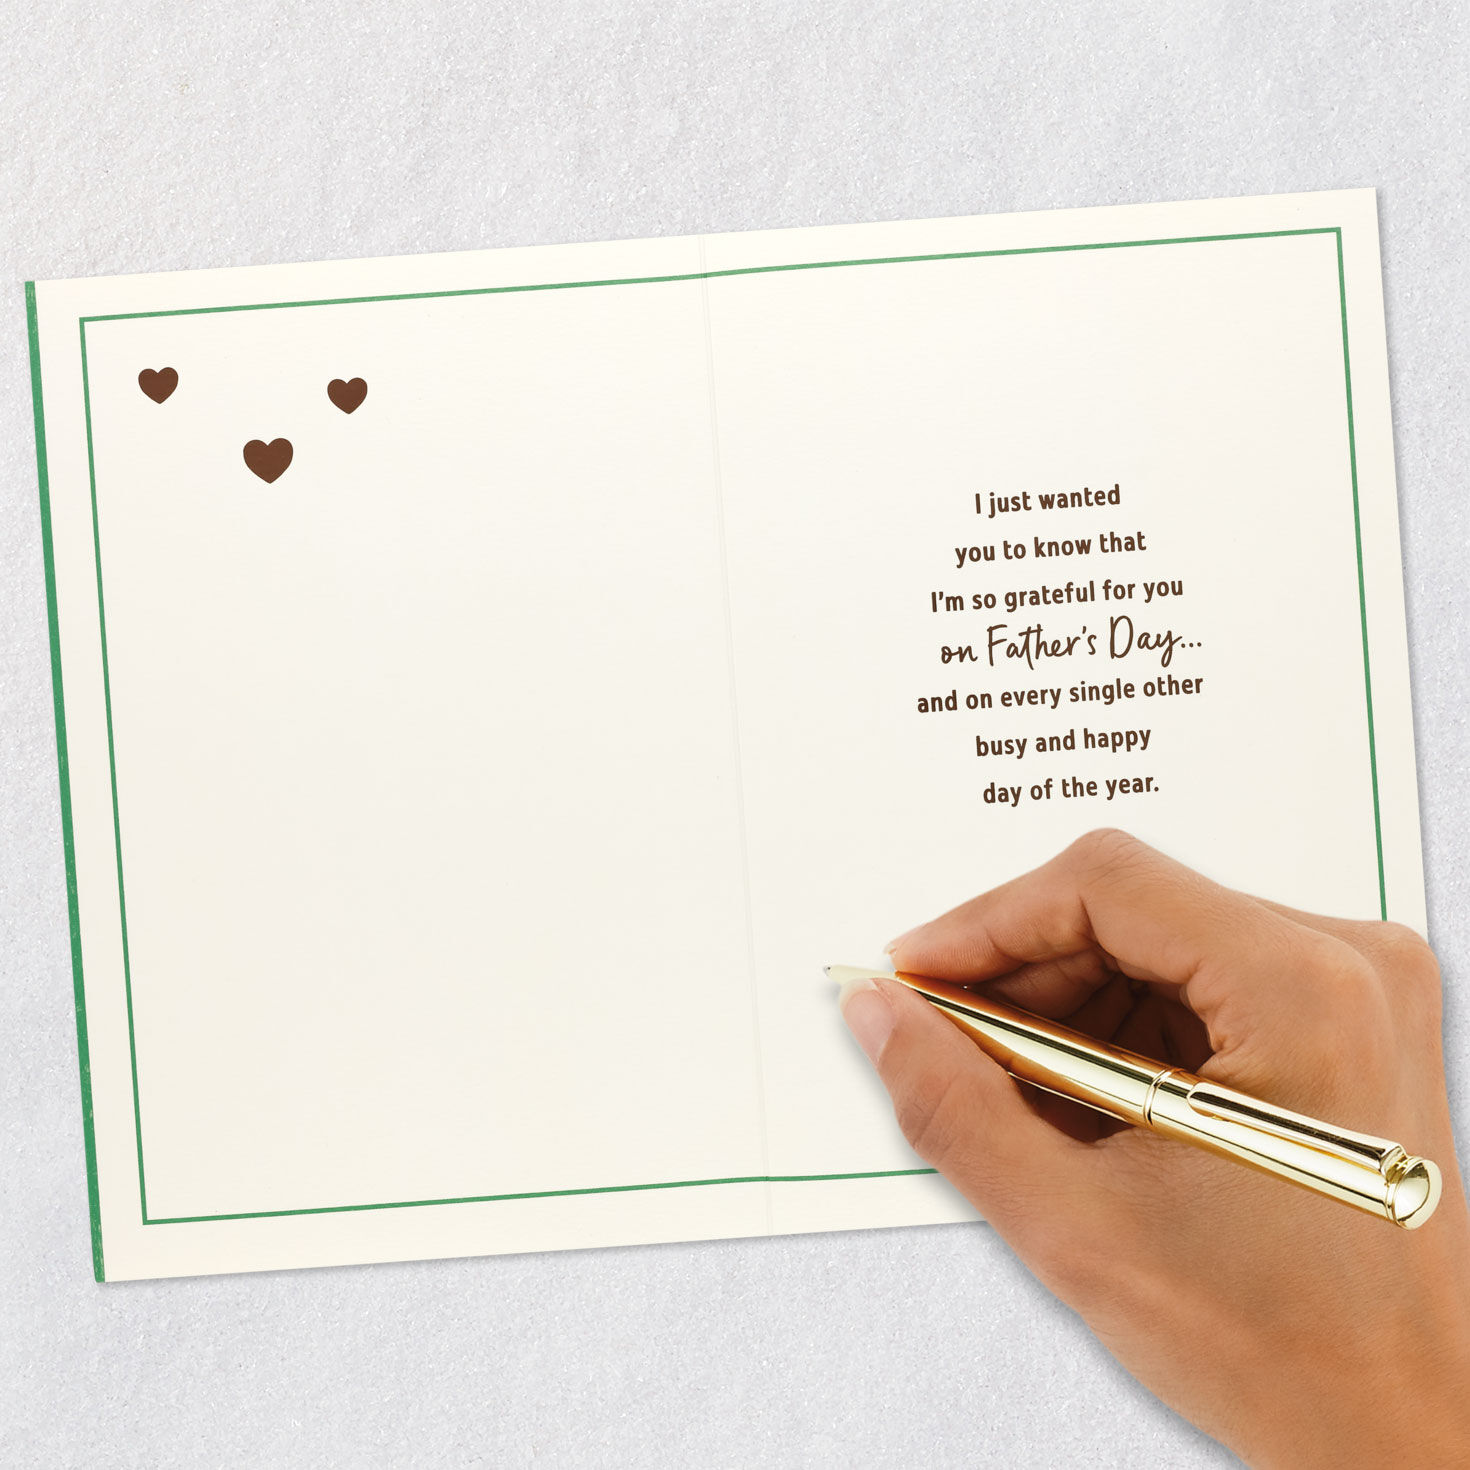 I just wanted
you to know that
I'm so grateful for you
on Father's Day...
and on every single other
busy and happy
day of the year.